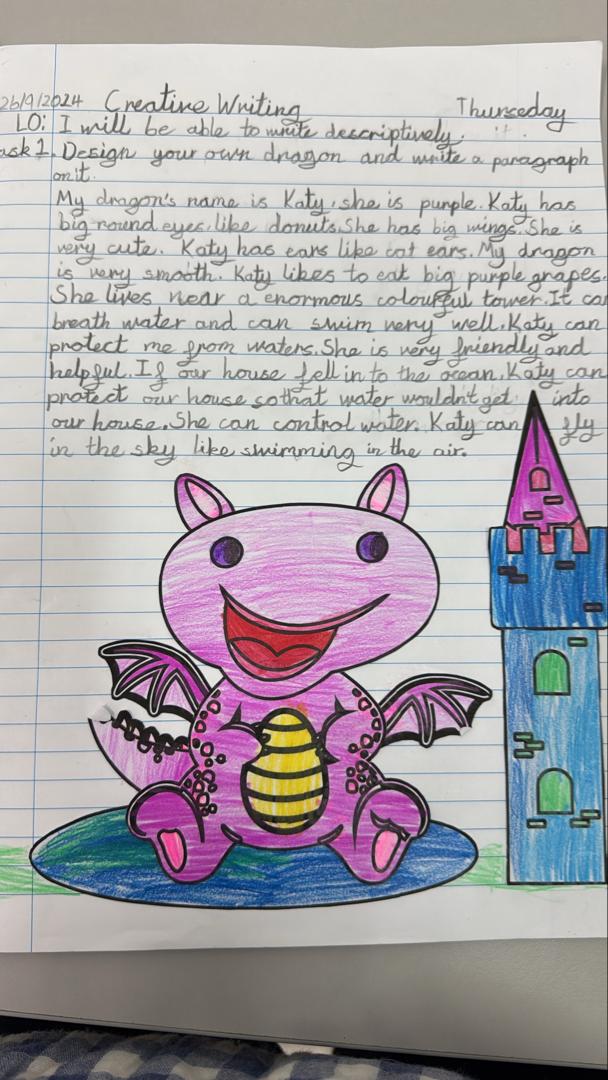 26/9/2024 Creative Writing Thurseday
LO: I will be able to write descriptively.
ask 1. Design your own dragon and write a paragraph
on it.
My dragon's name is Katy, she is purple. Katy has
big round eyes, like donuts. She has big wings. She is
very cute. Katy has ears like cat ears. My dragon
is very smooth. Katy likes to eat big purple grapes.
She lives near a enormous colourful tower. It ca
breath water and can swim very well. Katy can
protect me from waters. She is very friendly and
helpful. If our house fell in to the ocean, Katy can
protect our house sothat water wouldn't get into
our house. She can control water. Katy can fly
in the sky like swimming in the air.